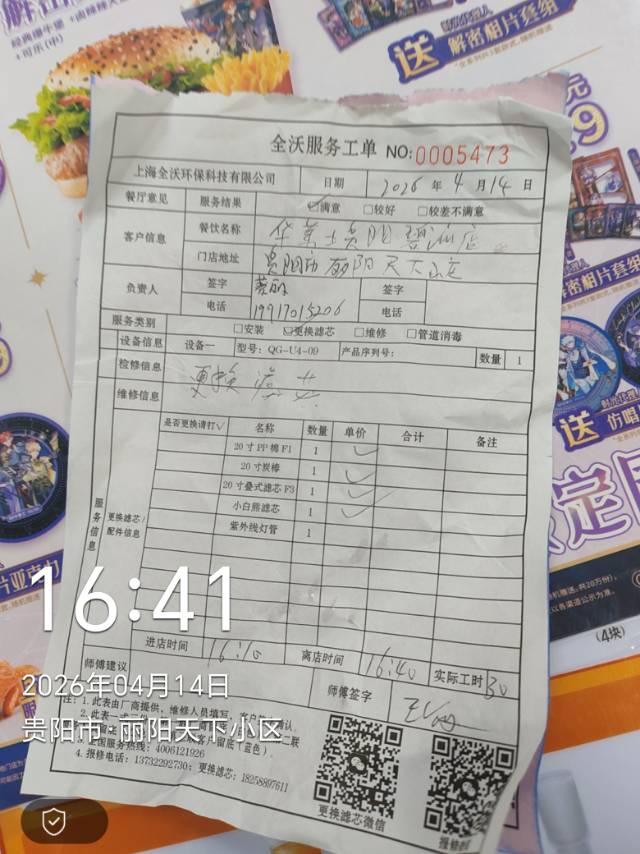 经典爆牛堡
+可乐(中)
送 解密相片套组
全沃服务工单 NO:0005473
上海全沃环保科技有限公司 日期 2026 年 4 月 14 日
餐厅意见 服务结果 ☑满意 □较好 □较差不满意
客户信息 餐饮名称
门店地址 贵阳市丽阳天下店
负责人 签字 签字
电话 19917015206 电话
服务类别 □安装 ☑更换滤芯 □维修 □管道消毒
设备信息 设备一 型号: QG-U4-09 产品序列号: 数量 1
检修信息 更换滤芯
维修信息
服务信息 更换滤芯/配件信息 是否更换请打√ 名称 数量 单价 合计 备注
20寸PP棉F1 1 ✓
20寸炭棒 1 ✓
20寸叠式滤芯F3 1 ✓
小白熊滤芯 1 ✓
紫外线灯管 1
进店时间 16:10 离店时间 16:40 实际工时 30
师傅建议 师傅签字
1. 此表由厂商提供，维修人员填写，客户
2. 此表一式
全国服务热线: 4006121926
4. 报修电话: 13732292730; 更换滤芯: 18258897611
更换滤芯微信
送 仿唱
(4块)
16:41
2026年04月14日
贵阳市·丽阳天下小区